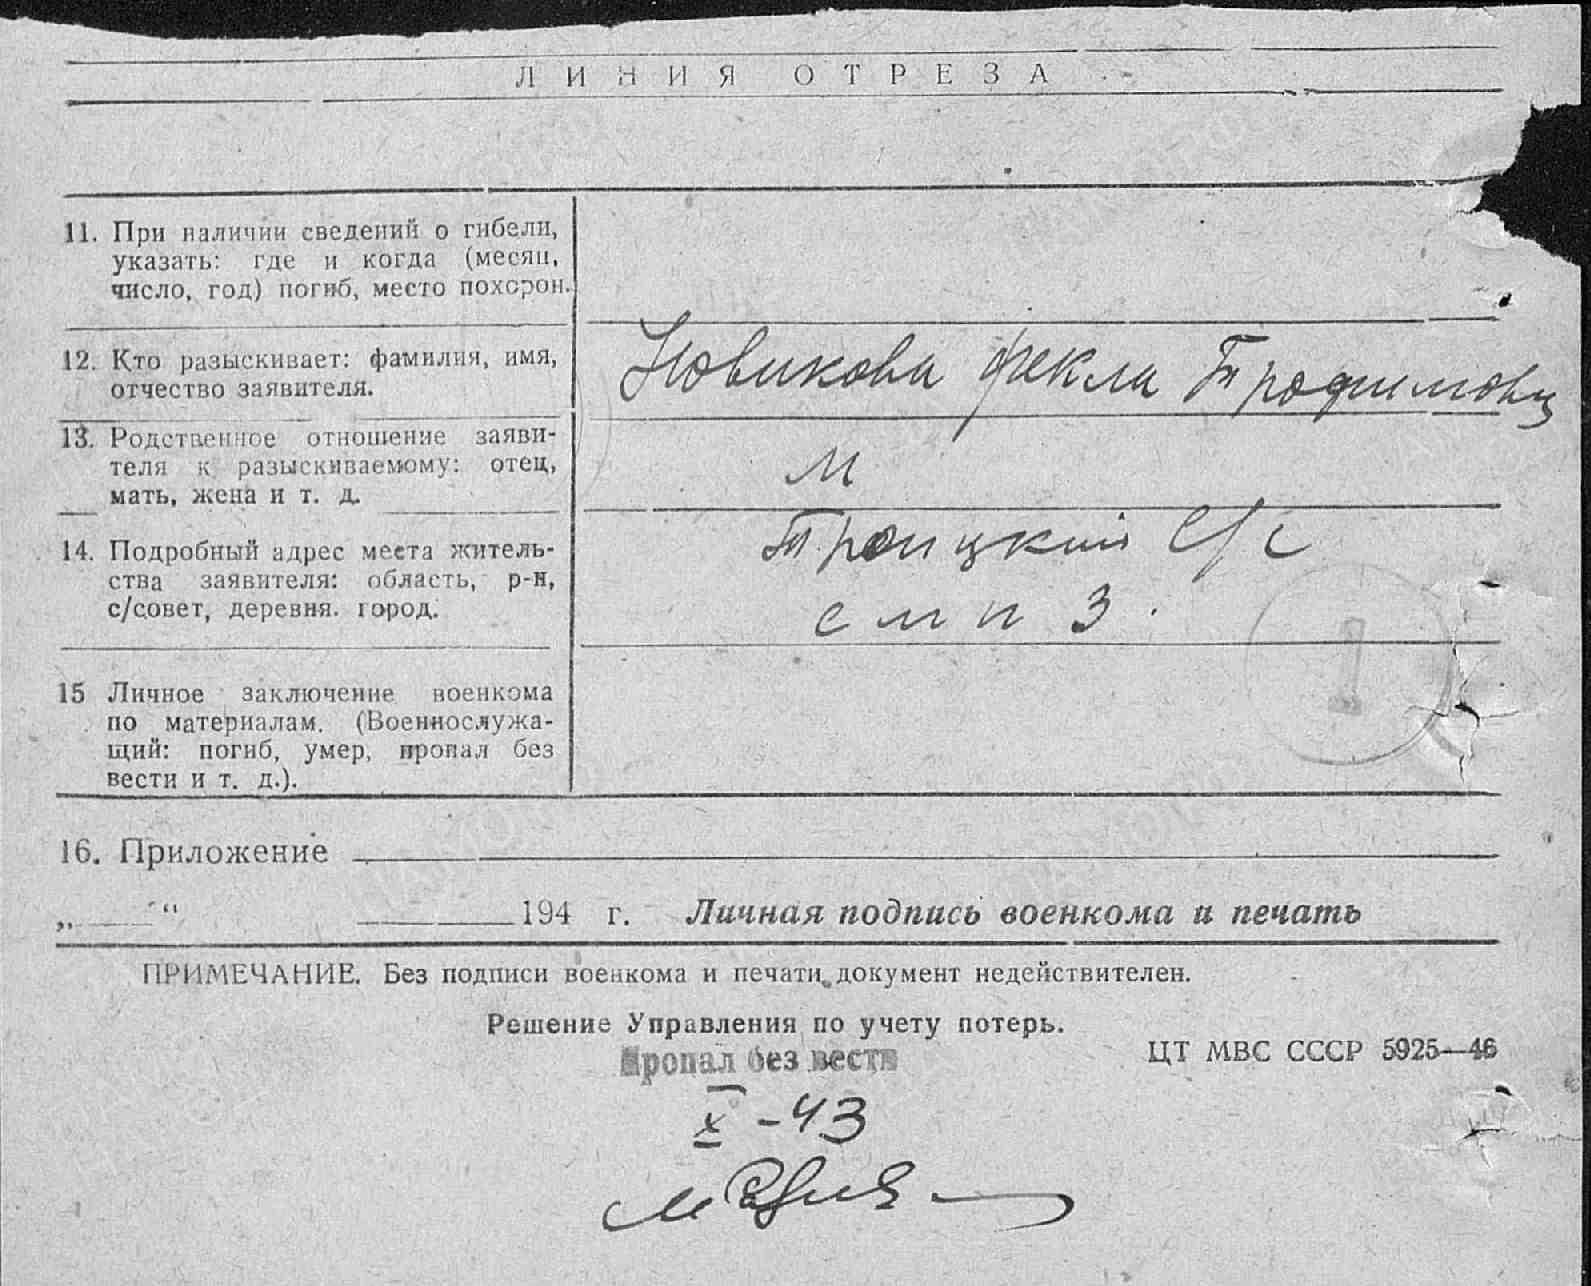 ЛИНИЯ ОТРЕЗА
11. При наличии сведений о гибели,
указать: где и когда (месяц,
число, год) погиб, место похорон.
12. Кто разыскивает: фамилия, имя,
отчество заявителя.
Новикова Фекла Трофимовн
13. Родственное отношение заяви-
теля к разыскиваемому: отец,
мать, жена и т. д.
м
14. Подробный адрес места житель-
ства заявителя: область, р-н,
с/совет, деревня. город.
Троицкий с/с
с м п 3.
1
15 Личное заключение военкома
по материалам. (Военнослужа-
щий: погиб, умер, пропал без
вести и т. д.).
16. Приложение
„ “ 194 г. Личная подпись военкома и печать
ПРИМЕЧАНИЕ. Без подписи военкома и печати документ недействителен.
Решение Управления по учету потерь.
Пропал без вести
ЦТ МВС СССР 5925—46
X -43